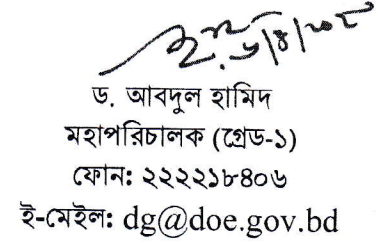 ড. আবদুল হামিদ
মহাপরিচালক (গ্রেড-১)
ফোন: ২২২২১৮৪০৬
ই-মেইল: dg@doe.gov.bd